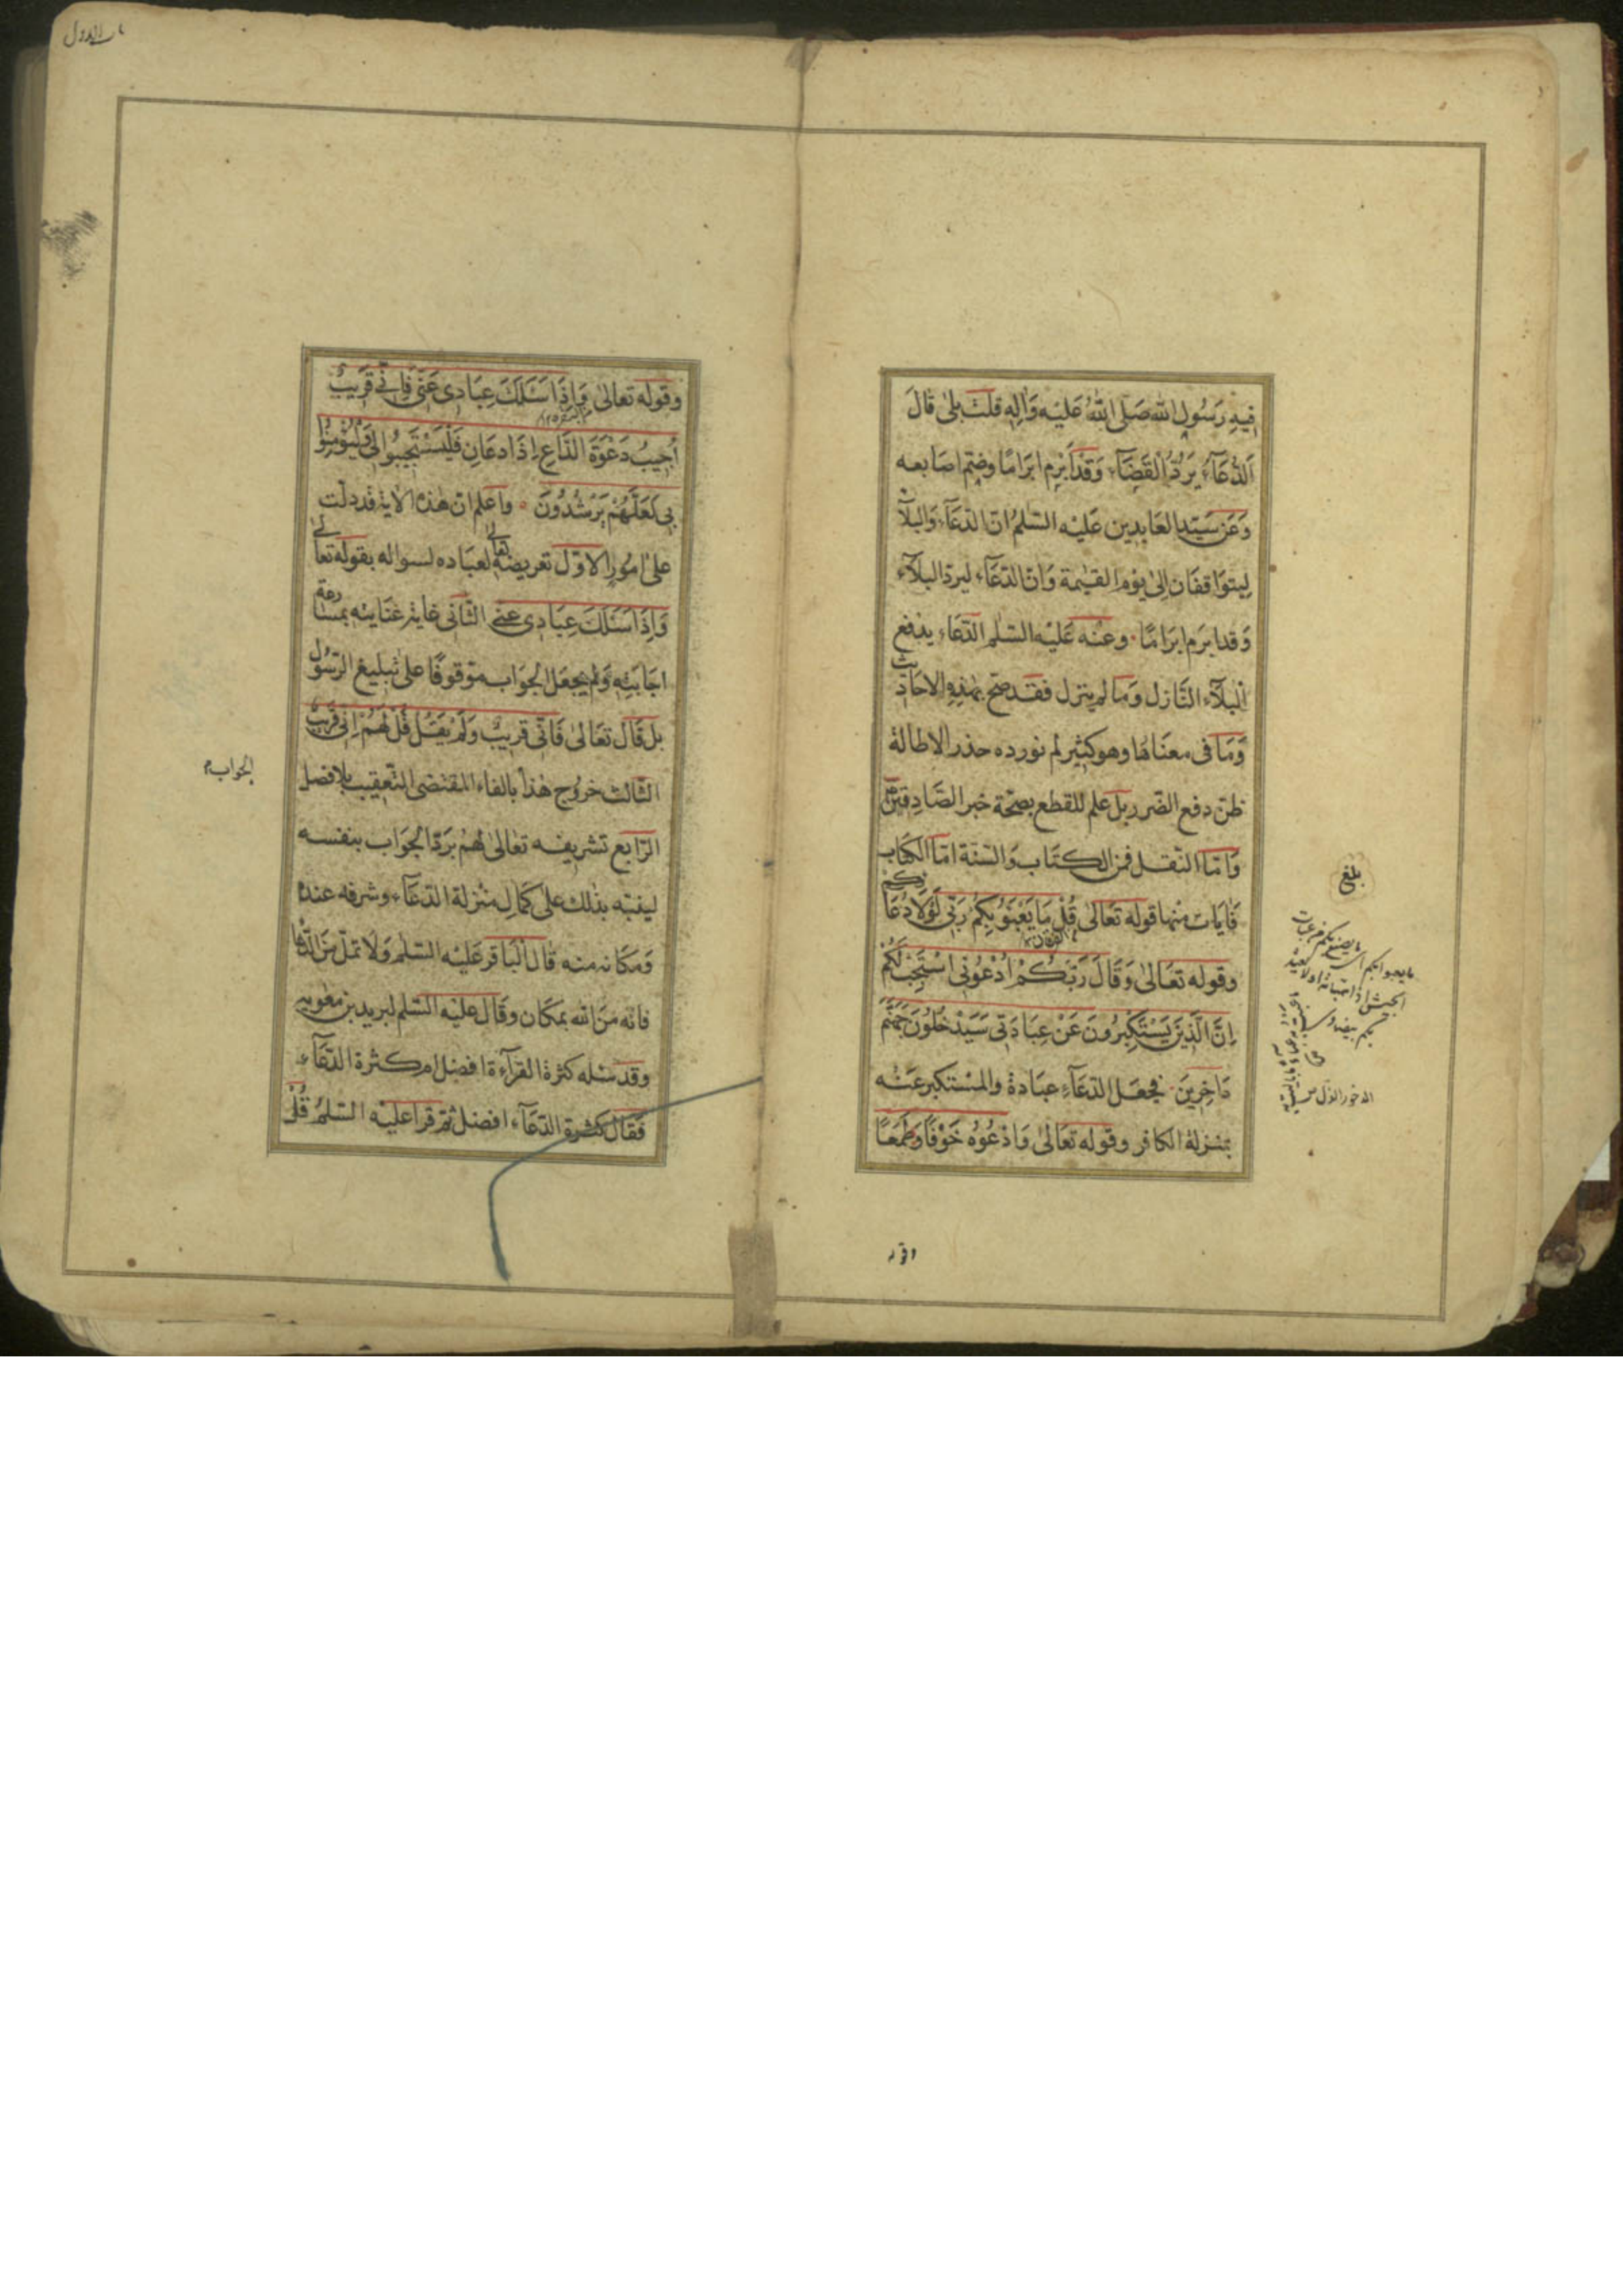 فِيهِ رَسُولِ اللّٰهِ صَلَّى اللّٰهُ عَلَيْهِ وَاٰلِهِ قُلتُ بَلىٰ قَالَ
اَلدُّعَآءُ يَرُدُّ الْقَضَآءَ وَقَدْ اُبْرِمَ اِبْرَامًا وضمّ اصَابعه
وَعَن سَيّد العَابدين عَلَيْه السّلمُ انّ الدّعَآءَ وَالبَلآءَ
ليتوَاقفَان اِلىٰ يَوْم القيٰمة وَانّ الدّعَآء ليردّ البَلآء
وَقد ابرم ابرَامًا وعَنْه عَلَيْه السّلم الدّعَاء يدفع
الْبلآء النّازل وَمَا لم ينزل فقد صحّ بهٰذِهِ الاحَاديث
وَمَا فى معنَاهَا وهو كثير لم نورده حذر الاطالة
ظنّ دفع الضّرر بل علم للقطع بصحّة خبر الصّادقين
وَامّا النّقل فمن الكتَاب وَالسّنّة امّا الكتَاب
فَايَات منْها قوله تَعَالىٰ قُلْ مَا يَعْبَؤُ بِكُمْ رَبّى لَوْلَا دُعَاؤكم
وقوله تعَالىٰ وَقَالَ رَبُّكُمْ اُدْعُونى اَسْتَجِبْ لَكُمْ
اِنَّ الَّذِينَ يَسْتَكْبِرُونَ عَنْ عِبَادَتى سَيَدْخُلُونَ جَهَنَّمَ
دَاخِرِينَ فجعَل الدّعَآءَ عبَادة والمسْتكبر عَنْه
بمنزلة الكافر وقوله تعَالىٰ وَادْعُوُه خَوْفًا وَطَمَعًا
بلغ
وقوله
وقوله تعالىٰ وَاِذَا سَئَلَكَ عِبَادى عَنّى فَاِنّى قَرِيبٌ
اُجِيبُ دَعْوَةَ الدَّاعِ اِذَا دعَانِ فَلْيَسْتَجِيبُوا لى وَلْيُؤْمِنُوا
بى لَعَلَّهُمْ يَرْشُدُونَ واعلم انّ هٰذه الاٰية قد دلّت
علىٰ امُور الاوّل تعريضه تعالى لعبَاده لسواله بقوله تعالىٰ
وَاِذَا سَئَلَكَ عِبَادى عنّى الثّانى غاية عنَايته بمسارعة
اجَابَتِه وَلم يجعَل الجوَاب موقوفًا علىٰ تبليغ الرّسُول
بل قَال تعَالىٰ فَانّى قريبٌ وَلَمْ يَقُل قُلْ لَهُمْ اِنّى قَريبٌ
الثّالث خروج هٰذا بالفاء المقتضى للتّعقيب بلا فصل
الجواب
الرّابع تشريفه تعالىٰ لهم برَدّ الجوَاب بنفسه
لينبّه بذٰلك علىٰ كمال منزلة الدّعَآء وشرفه عنده
وَمكَانه منه قَال الْبَاقر عَليْه السّلم وَلَا تملّ مَن الدّعَا
فانّه مَن الله بمكَان وقَال عليْه السّلم لبريد بن معٰوية
وقد سئله كثرة القرآءة افضل ام كثرة الدّعَآء
فَقَال كثرة الدّعَآء افضل ثمّ قرا عليْه السّلمُ قُلْ